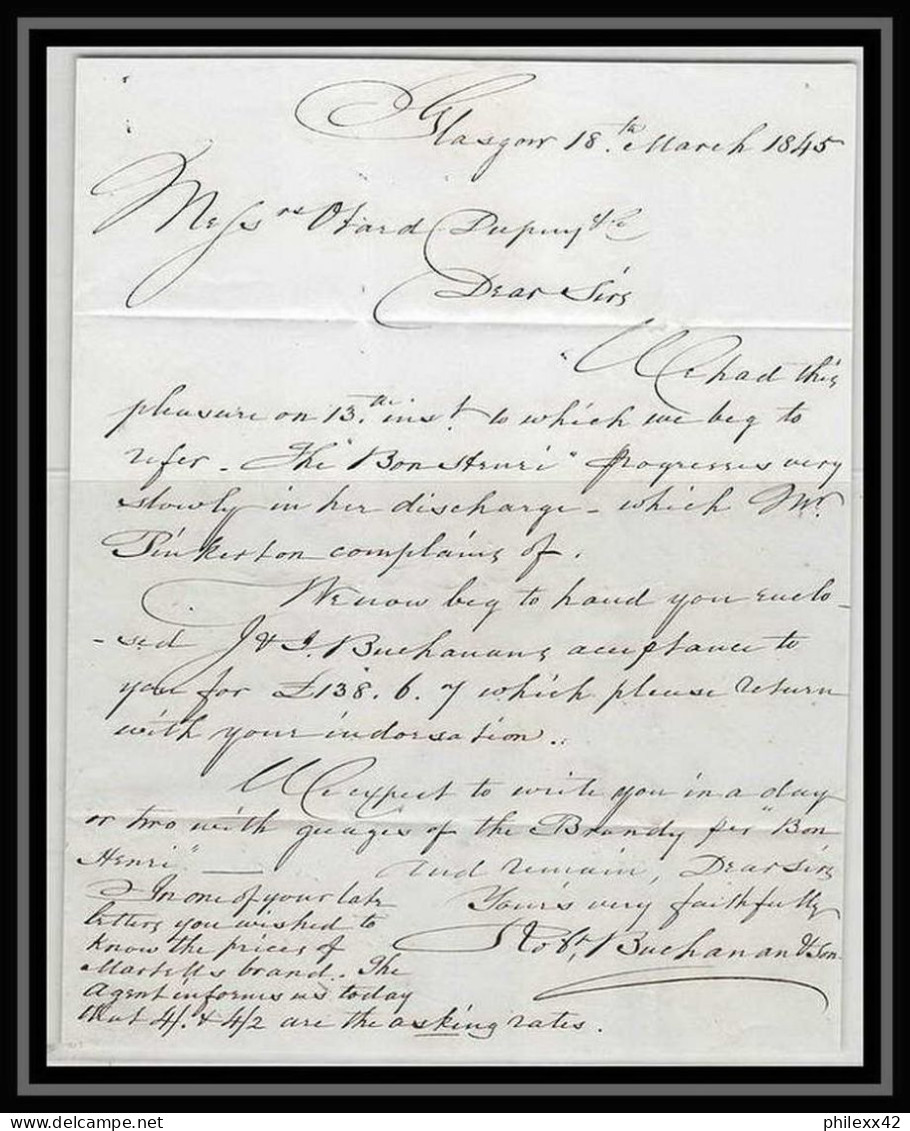 Glasgow 18.th March 1845
Messrs Otard Dupuy & Co
Dear Sirs
We had this
pleasure on 13.th inst. to which we beg to
refer - The "Bon Henri" progresses very
slowly in her discharge - which Mr.
Pinkerton complains of.
We now beg to hand you enclo-
-sed J & J. Buchanans acceptance to
you for £138.6.7 which please return
with your indorsation..
We expect to write you in a day
or two with guages of the Brandy per "Bon
Henri" — and remain, Dear Sirs
Yours very faithfully
Robt. Buchanan & Son
In one of your late
letters you wished to
know the prices of
Martells brand. The
Agent informs us today
that 4/. & 4/2 are the asking rates.
philexx42